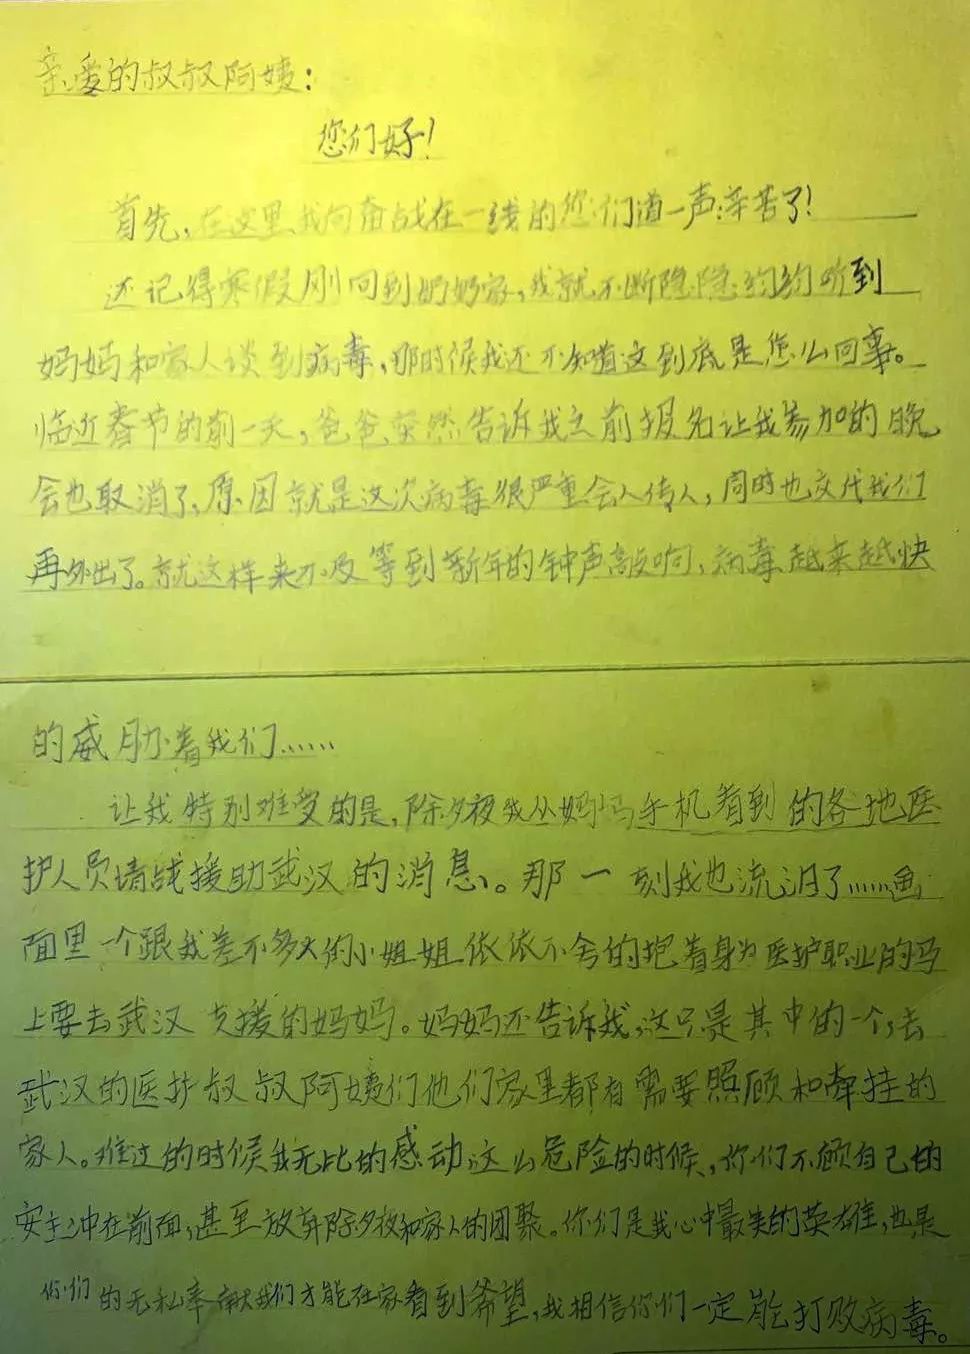 亲爱的叔叔阿姨：
您们好！
首先，在这里，我向奋战在一线的您们道一声：辛苦了！
还记得寒假刚回到奶奶家，我就不断隐隐约约听到
妈妈和家人谈到病毒，那时候我还不知道这到底是怎么回事。
临近春节的前一天，爸爸突然告诉我之前报名让我参加的晚
会也取消了，原因就是这次病毒很严重会人传人，同时也交代我们
再外出了。就这样来不及等到新年的钟声敲响，病毒越来越快
的威胁着我们……
让我特别难受的是，除夕夜我从妈妈手机看到的各地医
护人员请战援助武汉的消息。那一刻我也流泪了……画
面里一个跟我差不多大的小姐姐依依不舍的抱着身为医护职业的马
上要去武汉支援的妈妈。妈妈还告诉我，这只是其中的一个，去
武汉的医护叔叔阿姨们他们家里都有需要照顾和牵挂的
家人。难过的时候我无比的感动，这么危险的时候，你们不顾自己的
安全冲在前面，甚至放弃除夕夜和家人的团聚。你们是我心中最美的英雄，也是
你们的无私奉献我们才能在家看到希望，我相信你们一定能打败病毒。